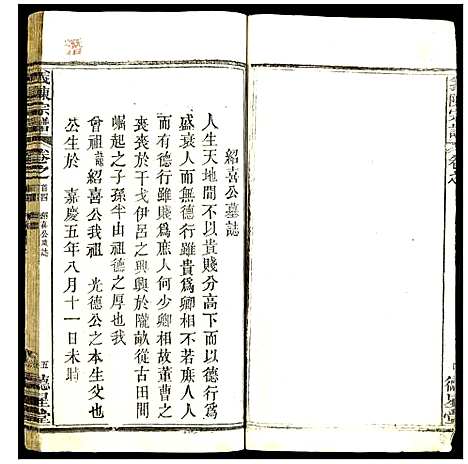 紹喜公墓誌
人生天地間不以貴賤分高下而以德行為
盛衰人而無德行雖貴為卿相不若庶人人
而有德行雖賤為庶人何少卿相故董曹之
喪喪於干戈伊呂之興興於隴畝從古田間
崛起之子孫半由祖德之厚也我
曾祖 紹喜公我祖 光德公之本生父也
公生於 嘉慶五年八月十一日未時
義陳宗譜
卷之
首四 紹喜公墓誌
五
德星堂
德星堂